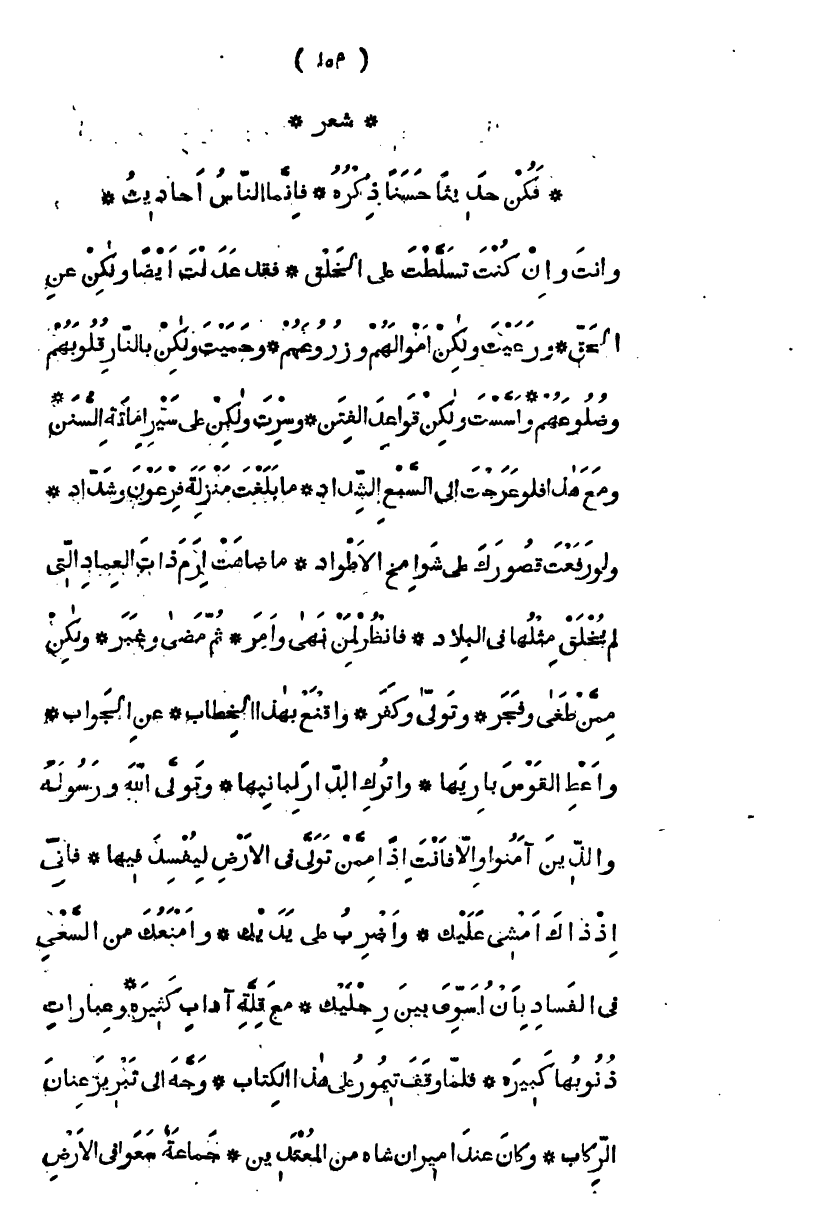 ( ١٥٣ )
* شعر *
* فَكُنْ حَدِيثًا حَسَنًا ذِكْرُهُ * فَإِنَّمَا النَّاسُ أَحَادِيثُ *
وانتَ وإنْ كُنْتَ تسَلَّطْتَ على الخَلْق * فقد عَدَلْتَ اَيْضًا ولٰكِنْ عنِ
الحَقّ * ورَعَيْتَ ولٰكِنْ اَمْوالَهُمْ وزُرُوعَهُمْ * وحَمَيْتَ ولٰكِنْ بالنّارِ قُلُوبَهُمْ
وضُلُوعَهُمْ * واَسَّسْتَ ولٰكِنْ قواعِدَ الفِتَن * وسِرْتَ ولٰكِنْ على سَيْرِ اِماتَةِ السُّنَن *
ومَعَ هٰذا فلو عَرَجْتَ الى السَّبْعِ الشِّداد * ما بَلَغْتَ مَنْزِلَةَ فِرْعَوْنَ وشَدّاد *
ولو رَفَعْتَ قصُورَكَ على شَوامِخِ الاَطْواد * ما ضاهَتْ اِرَمَ ذاتَ العِمادِ الّتى
لم يُخْلَقْ مِثْلُها فى البِلاد * فانْظُرْ لِمَنْ نَهٰى واَمَر * ثُمّ مَضٰى وغَبَر * ولٰكِنْ
مِمَّنْ طَغٰى وفَجَر * وتَولّٰى وكَفَر * واقْنَعْ بهٰذا الخِطاب * عنِ الجَواب *
واَعْطِ القَوْسَ بارِيَها * واترُكِ الدّارَ لِبانِيها * وتَولَّى اللّٰهَ ورَسُولَهُ
والّذِينَ آمَنُوا واِلّا فاَنْتَ اِذًا مِمَّنْ تَوَلَّى فى الاَرْضِ لِيُفْسِدَ فِيها * فاِنِّى
اِذْ ذاكَ اَمْشِى عَلَيْك * واَضْرِبُ على يَدَيْك * واَمْنَعُكَ من السَّعْىِ
فى الفَسادِ بِاَنْ اُسَوِّىَ بينَ رِجْلَيْك * معَ قِلَّةِ آدابٍ كَثِيرَه * وعِباراتٍ
ذُنُوبُها كَبِيرَه * فلمّا وقَفَ تيمُورُ على هٰذا الكِتاب * وَجَّهَ الى تَبْرِيزَ عِنانَ
الرِّكاب * وكانَ عندَ اميران شاه من المُعْتَدِين * جَماعَةٌ سَعَوا فى الاَرْضِ